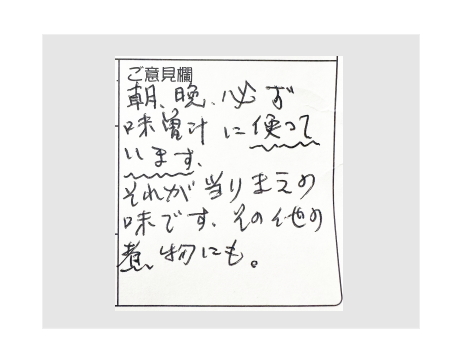 ご意見欄
朝、晩、必ず
味噌汁に使って
います。
それが当りまえの
味です。その他の
煮物にも。